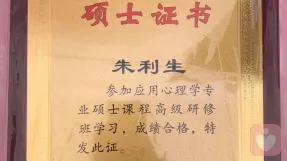 硕士证书
朱利生
参加应用心理学专
业硕士课程高级研修
班学习，成绩合格，特
发此证。